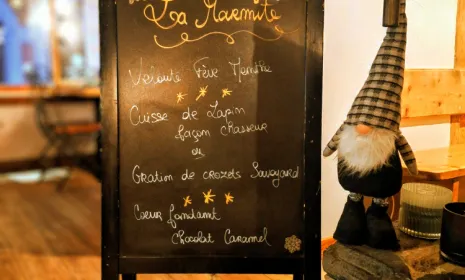 La Marmite
Velouté Fève Menthe
Cuisse de Lapin
façon chasseur
ou
Gration de crozets Savoyard
Coeur fondant
Chocolat Caramel